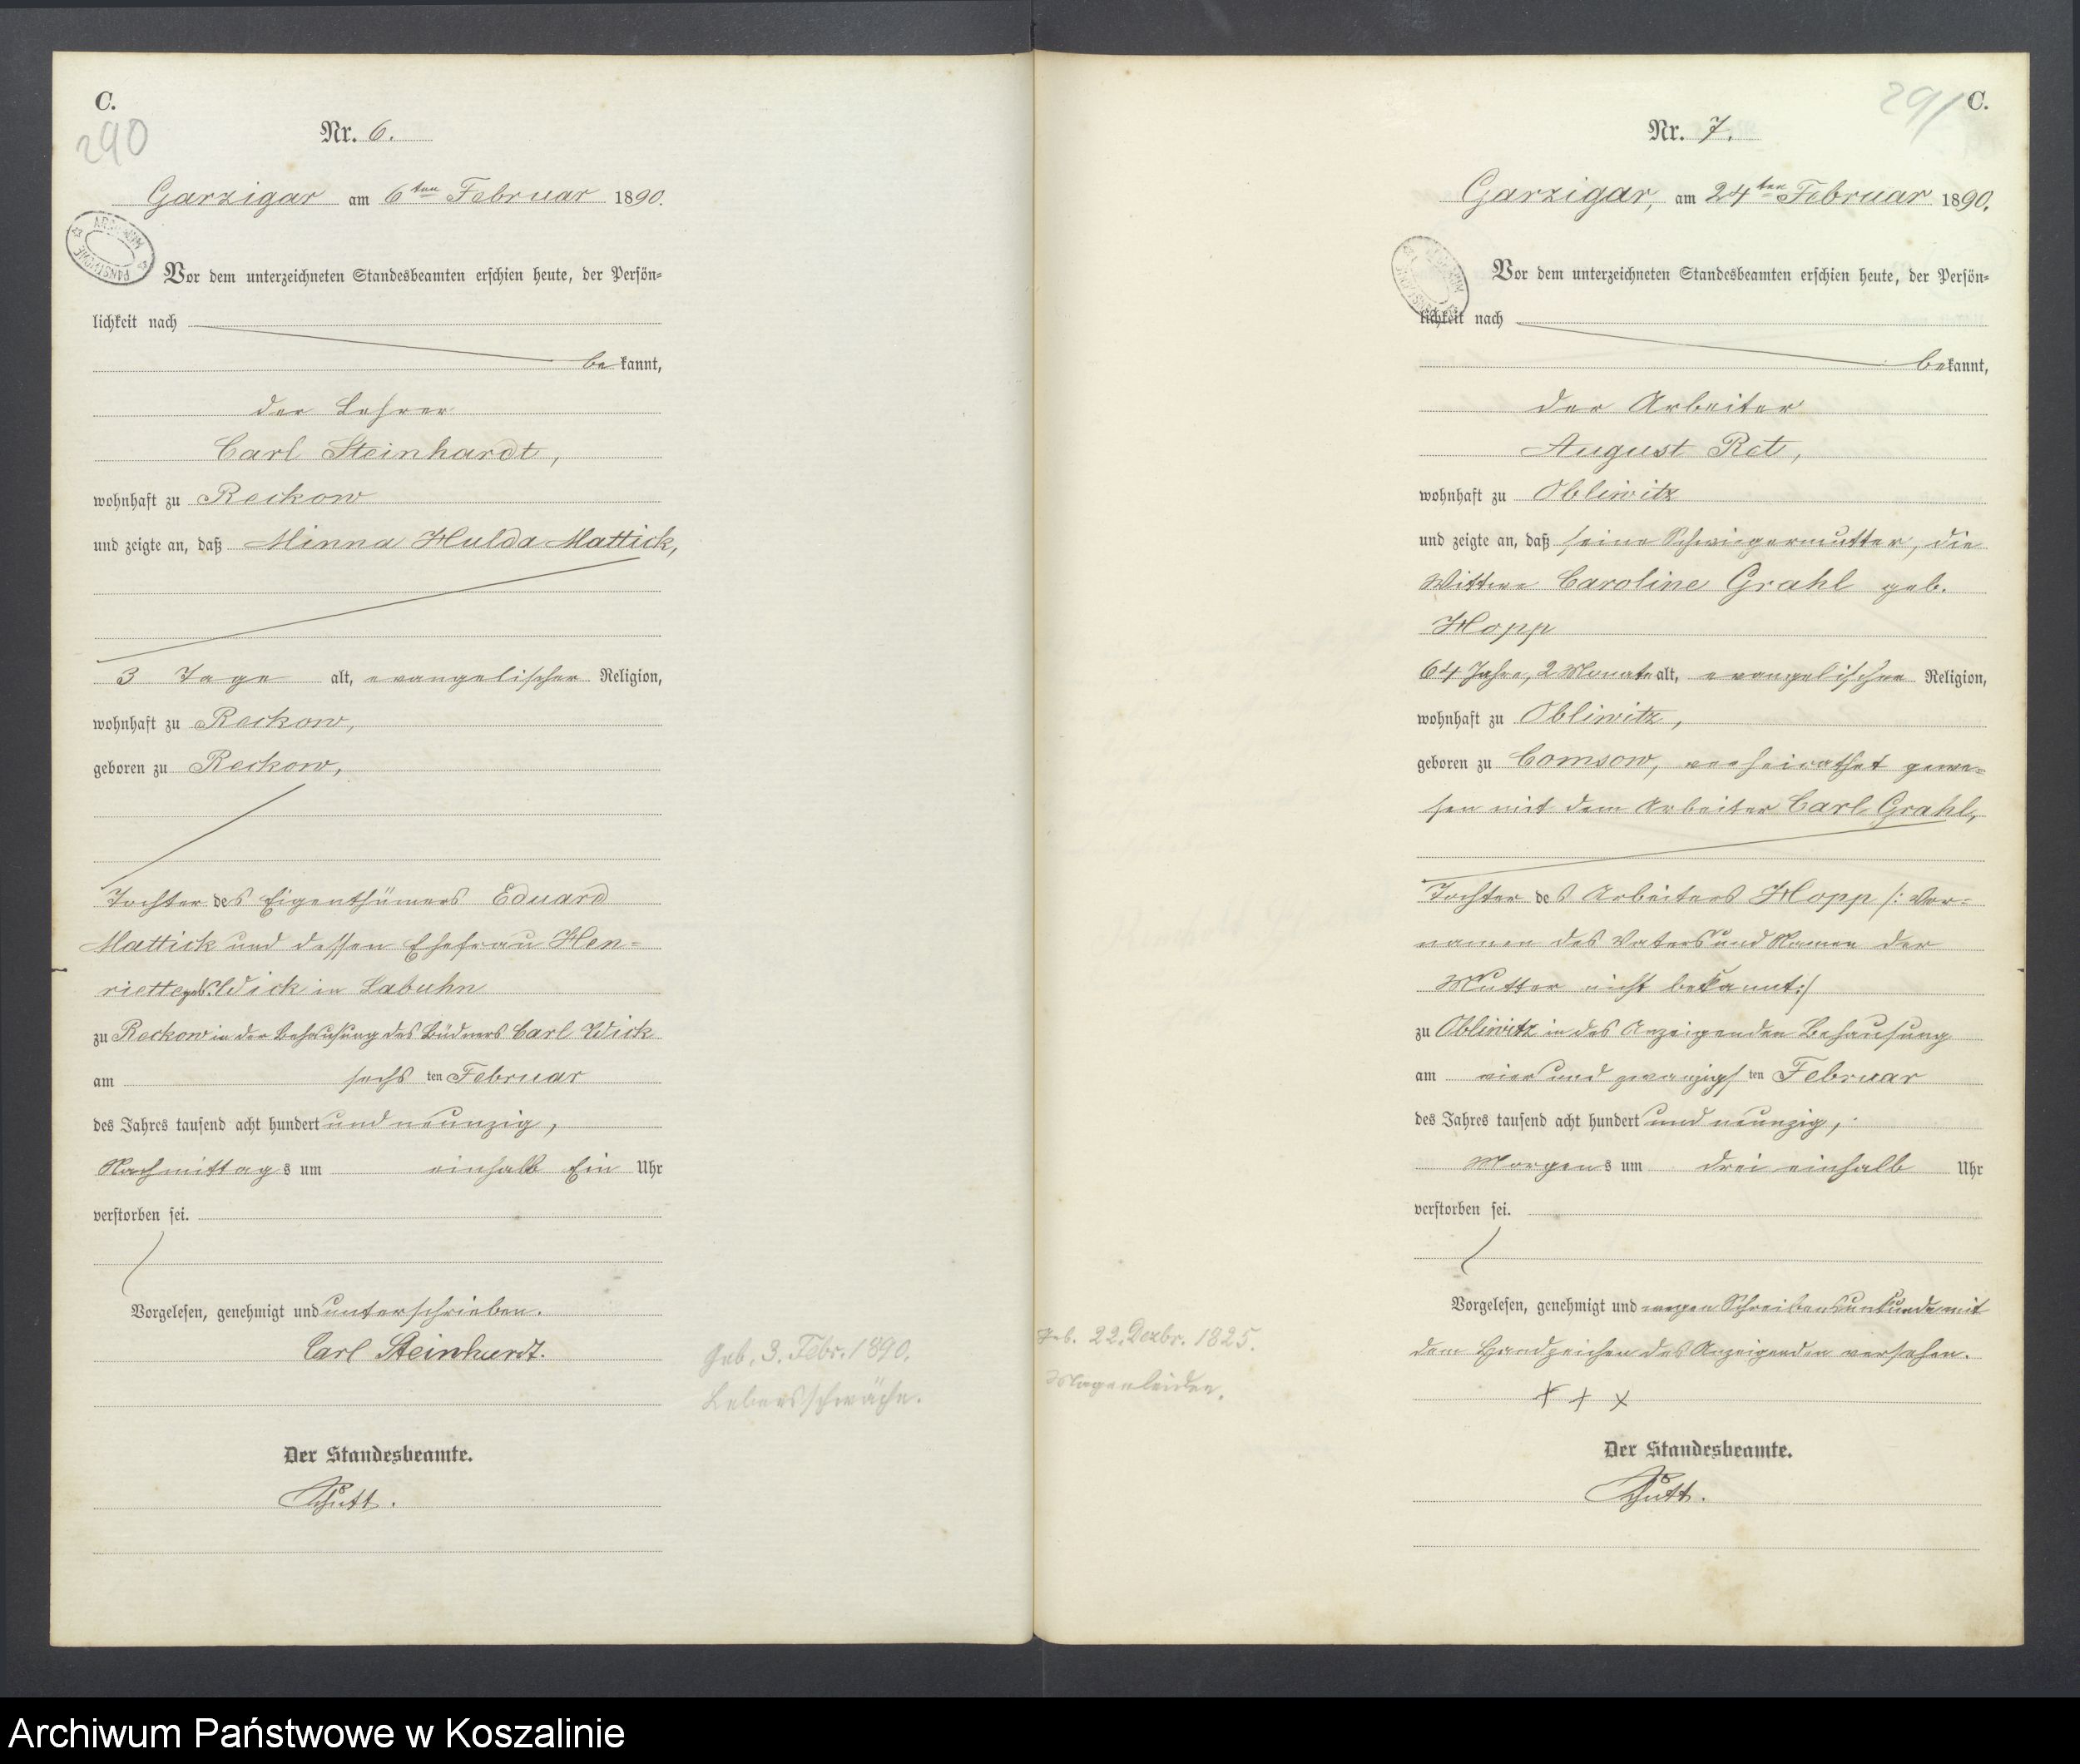 C.
290
Nr. 6.
Garzigar am 6ten Februar 1890.
ARCHIWUM PAŃSTWOWE
Vor dem unterzeichneten Standesbeamten erschien heute, der Persön=
lichkeit nach
bekannt,
der Lehrer
Carl Steinhardt,
wohnhaft zu Reckow
und zeigte an, daß Minna Hulda Mattick,
3 Tage alt, evangelischer Religion,
wohnhaft zu Reckow,
geboren zu Reckow,
Tochter des Eigenthümers Eduard
Mattick und dessen Ehefrau Hen=
riette geb. Wick in Labuhn
zu Reckow in der Behausung des Büdners Carl Wick
am sechsten Februar
des Jahres tausend acht hundert und neunzig,
Nachmittags um einhalb Ein Uhr
verstorben sei.
Vorgelesen, genehmigt und unterschrieben.
Carl Steinhardt.
Geb. 3. Febr. 1890.
Lebensschwäche.
Der Standesbeamte.
291
C.
Nr. 7.
Garzigar, am 24ten Februar 1890.
Vor dem unterzeichneten Standesbeamten erschien heute, der Persön=
lichkeit nach
bekannt,
der Arbeiter
August Ret,
wohnhaft zu Obliwitz
und zeigte an, daß seine Schwiegermutter, die
Wittwe Caroline Grahl geb.
Hopp
64 Jahre, 2 Monate alt, evangelischer Religion,
wohnhaft zu Obliwitz,
geboren zu Comsow, verheirathet gewe=
sen mit dem Arbeiter Carl Grahl,
Tochter des Arbeiters Hopp /: Vor=
namen des Vaters und Namen der
Mutter nicht bekannt :/
zu Obliwitz in des Anzeigenden Behausung
am vier und zwanzigsten Februar
des Jahres tausend acht hundert und neunzig,
Morgens um drei einhalb Uhr
verstorben sei.
Vorgelesen, genehmigt und wegen Schreibensunkunde mit
dem Handzeichen des Anzeigenden versehen.
+ + x
Geb. 22. Dezbr. 1825.
Magenleiden.
Der Standesbeamte.
Archiwum Państwowe w Koszalinie